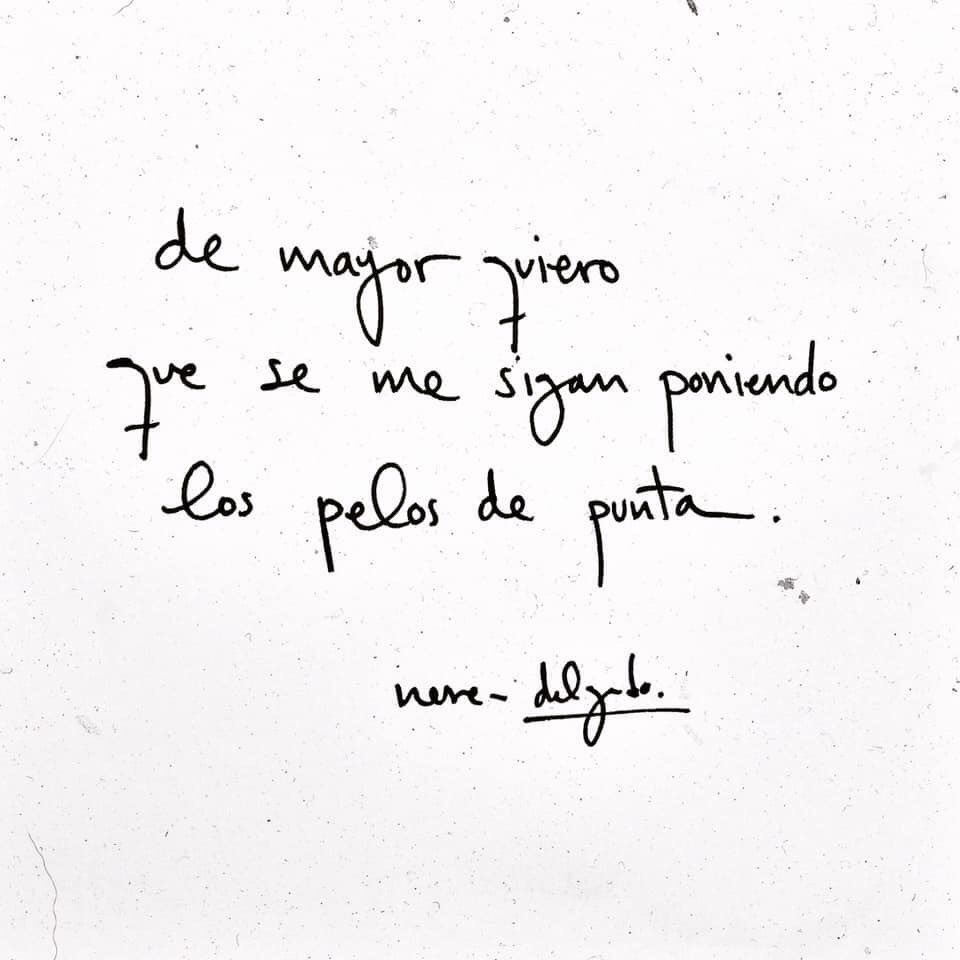 de mayor quiero
que se me sigan poniendo
los pelos de punta.
nere- delgado.